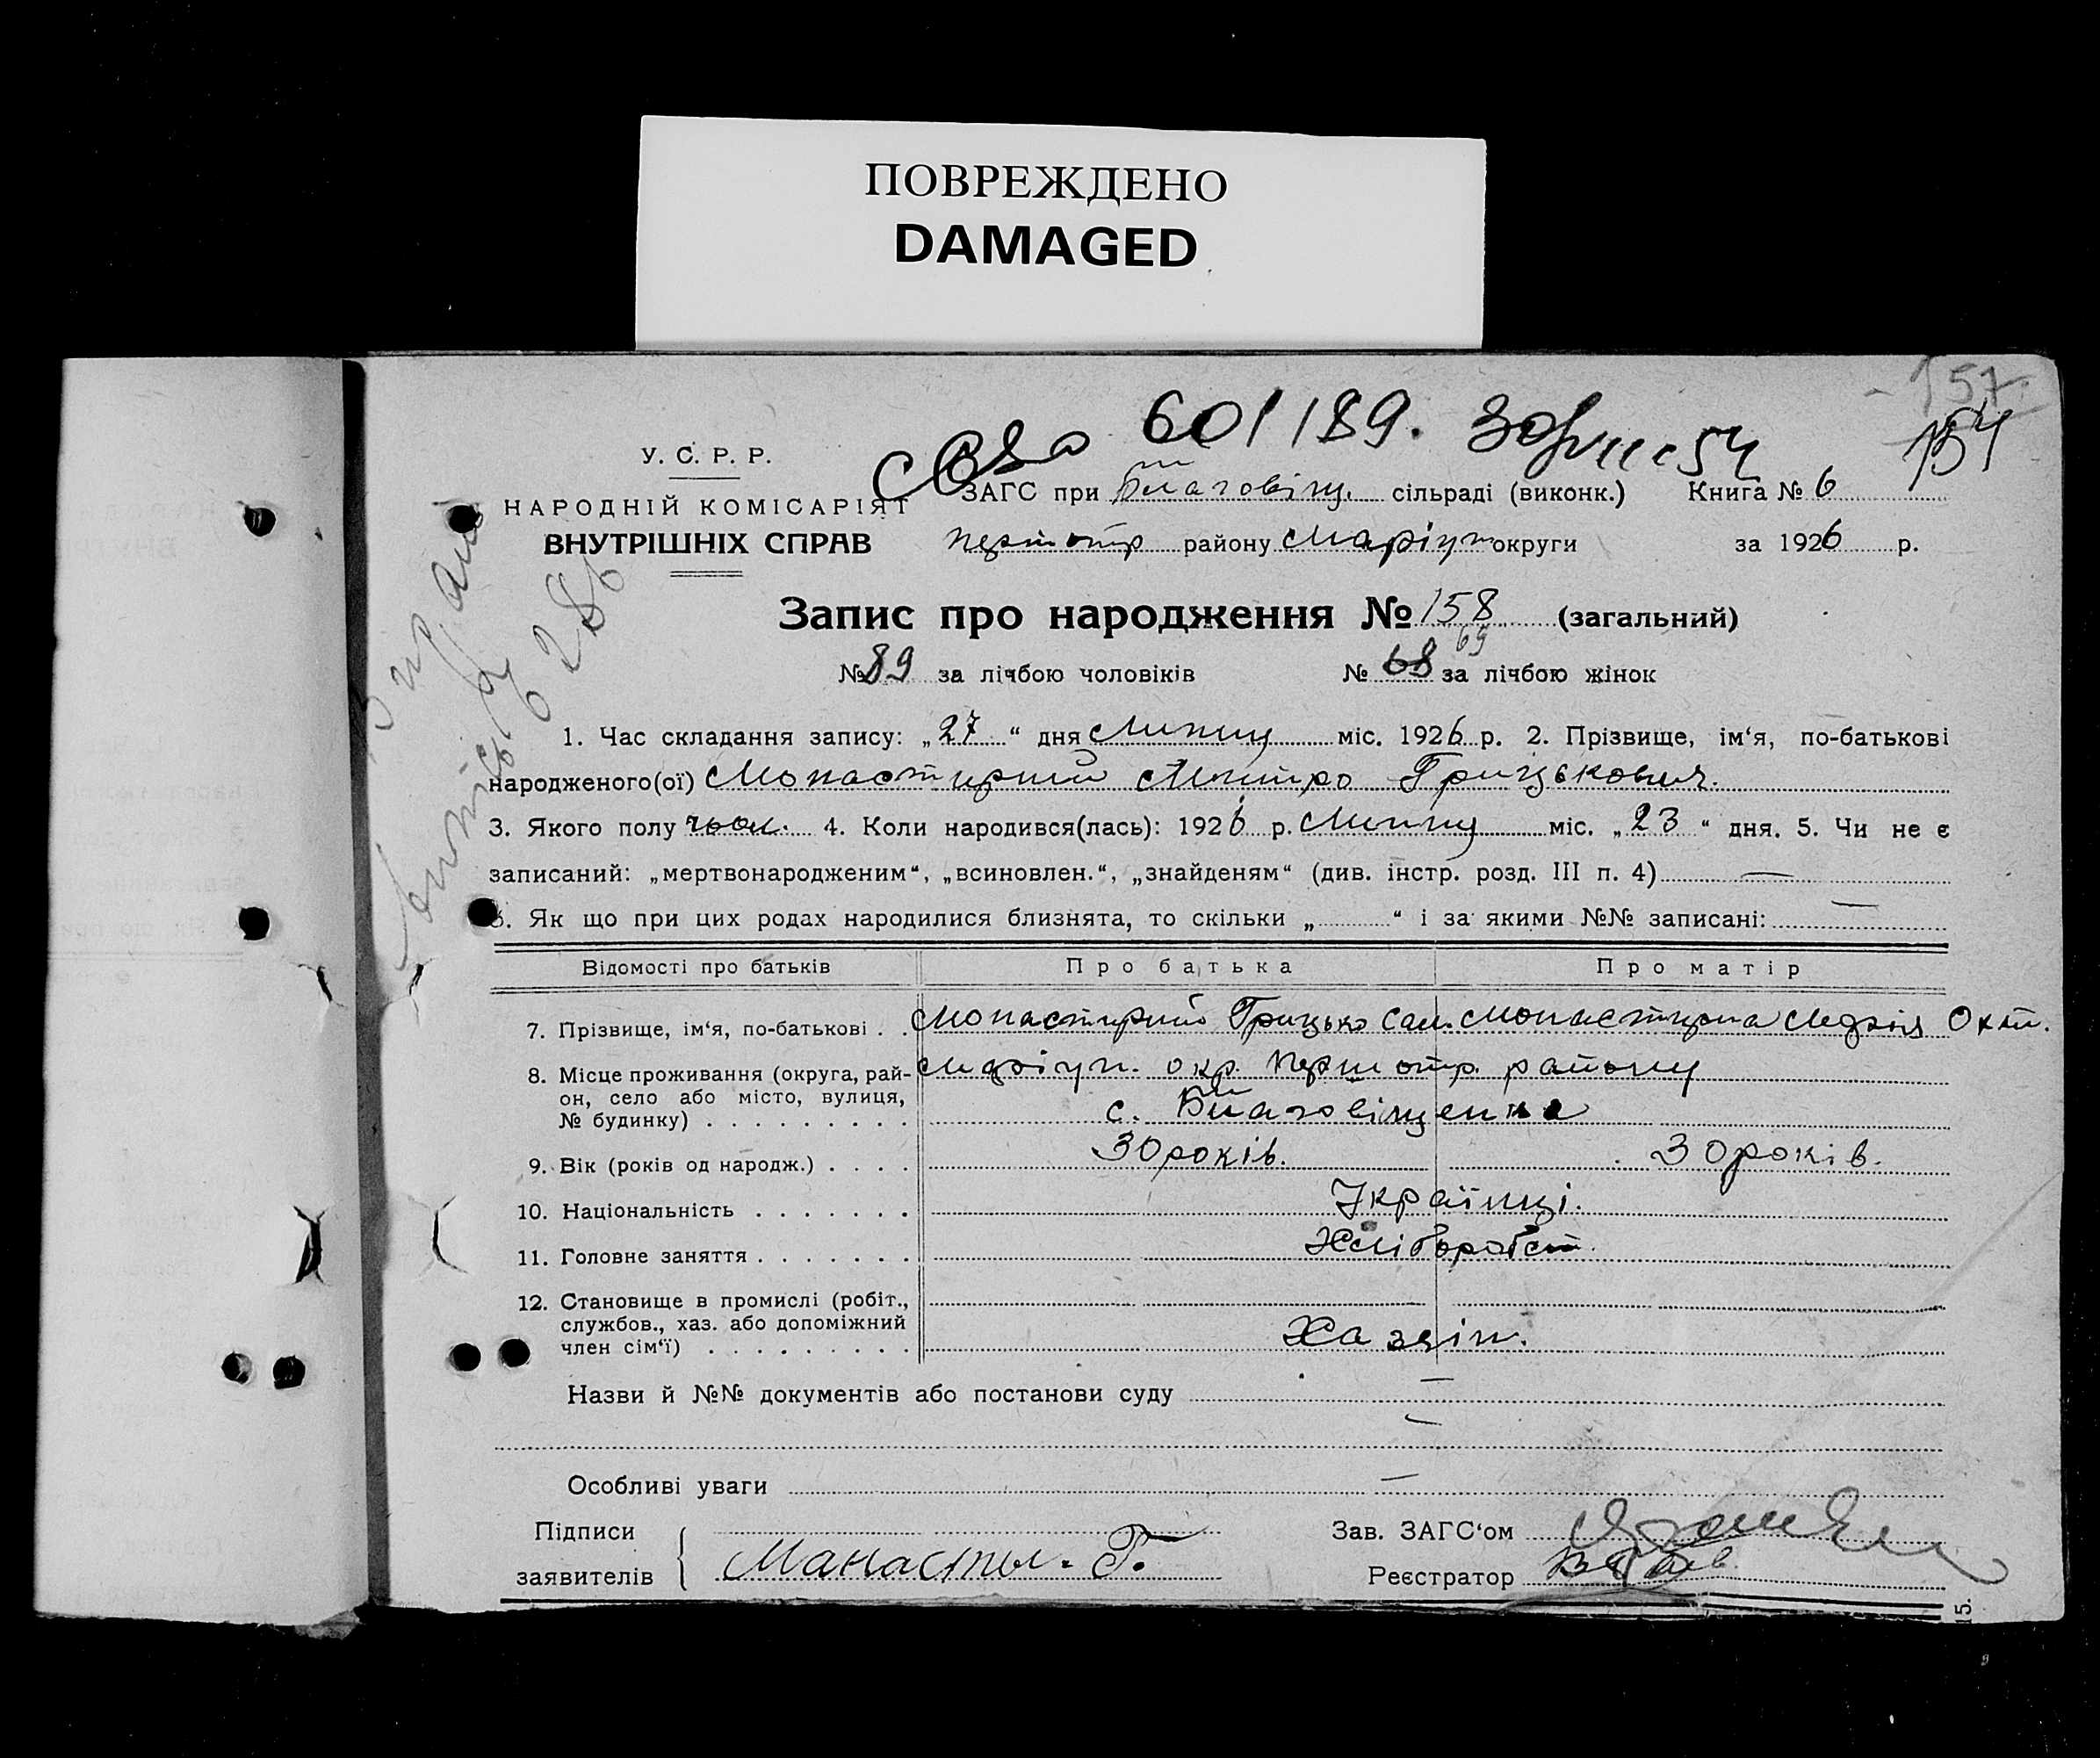 ПОВРЕЖДЕНО
DAMAGED
157
154
601189.
У. С. Р. Р.
НАРОДНІЙ КОМІСАРІЯТ
ВНУТРІШНІХ СПРАВ
ЗАГС при Благовіщ. сільраді (виконк.) Книга № 6
району Маріуп округи за 1926 р.
Запис про народження № 158 (загальний)
69
№ 89 за лічбою чоловіків № 68 за лічбою жінок
1. Час складання запису: „27“ дня Липня міс. 1926 р. 2. Прізвище, ім‘я, по-батькові
народженого(ої) Монастирний Митро Грицькович.
3. Якого полу чол. 4. Коли народився(лась): 1926 р. Липня міс. „23“ дня. 5. Чи не є
записаний: „мертвонародженим“, „всиновлен.“, „знайденям“ (див. інстр. розд. III п. 4) —
6. Як що при цих родах народилися близнята, то скільки „ “ і за якими №№ записані: —
Відомості про батьків Про батька Про матір
7. Прізвище, ім‘я, по-батькові . . Монастирний Грицько Сам. Монастирна Марія Охт.
8. Місце проживання (округа, рай- Маріуп. окр. району
он, село або місто, вулиця,
№ будинку) . . . . . . . . . с. Благовіщенка
9. Вік (років од народж.) . . . . 30 років. 30 років.
10. Національність . . . . . . . Українці.
11. Головне заняття . . . . . . . Хліборобст.
12. Становище в промислі (робіт.,
службов., хаз. або допоміжний
член сім‘ї) . . . . . . . . . Хазяін.
Назви й №№ документів або постанови суду —
—
Особливі уваги —
Підписи
заявителів Манасты. Г.
Зав. ЗАГС‘ом
Реєстратор
15.